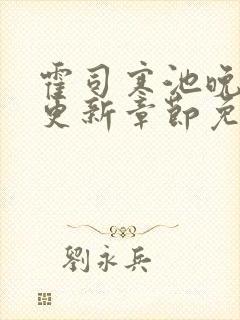 霍司寒池晚
更新章节免
劉永兵